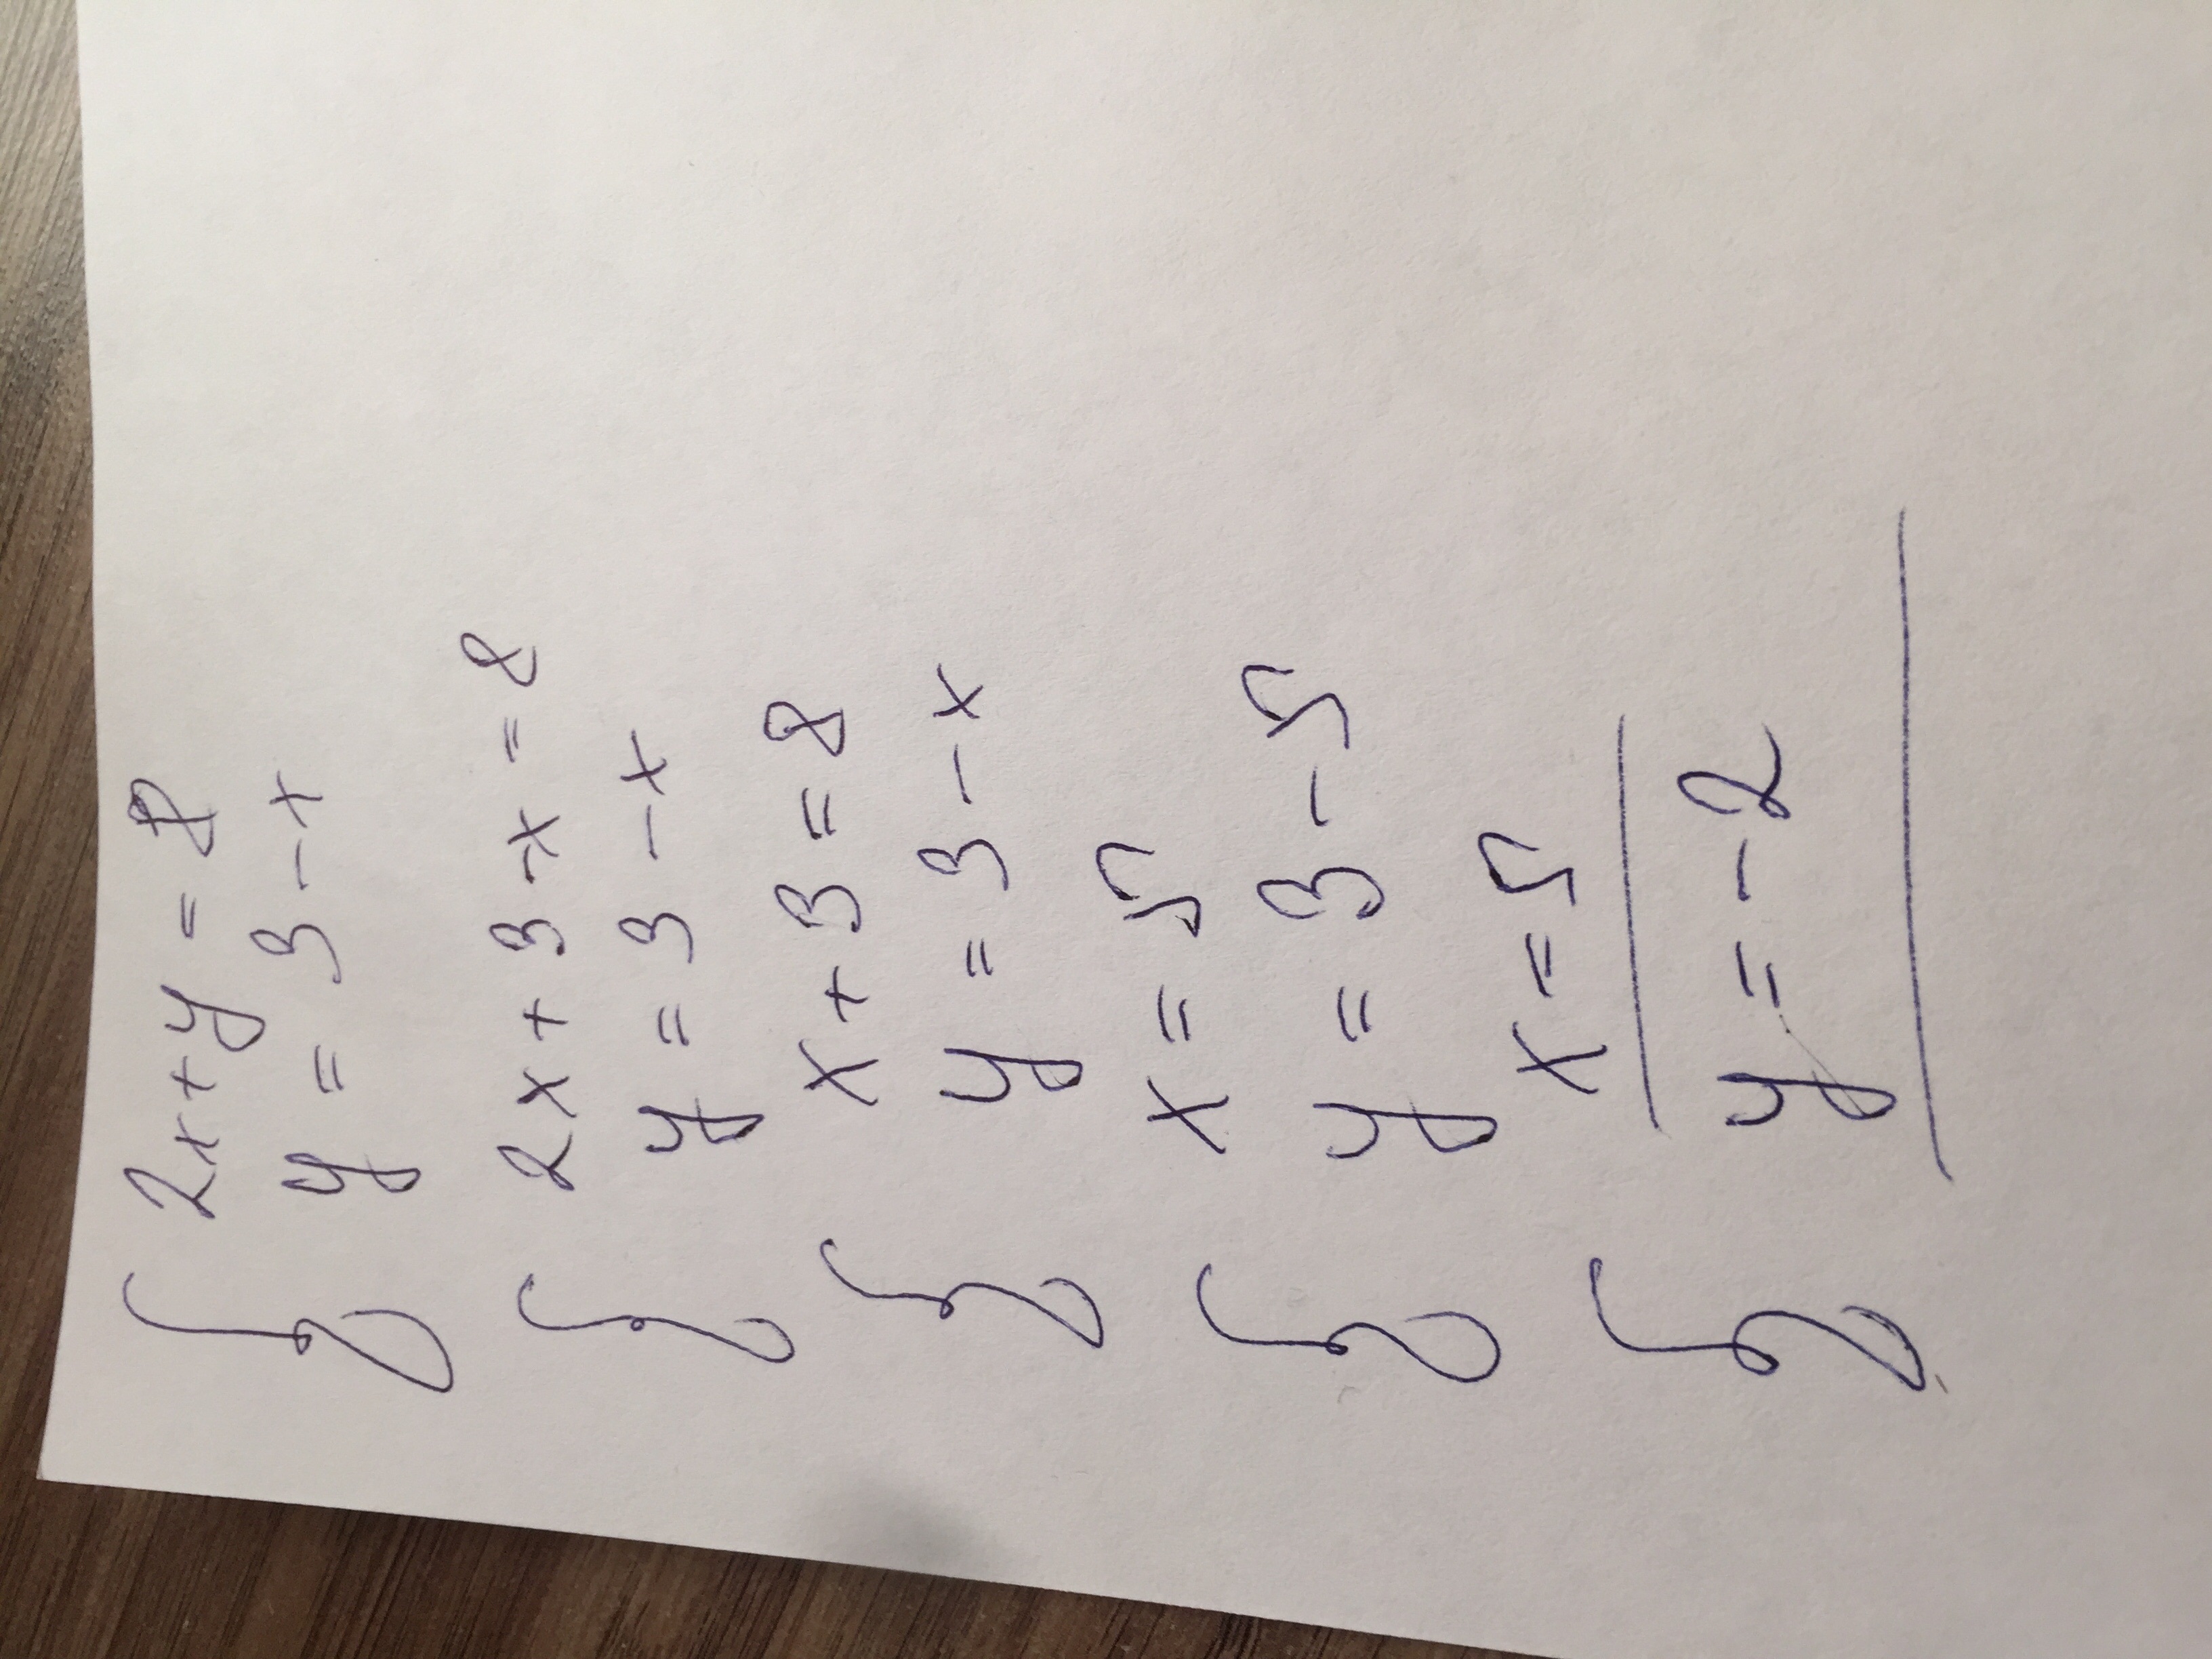 { 2x+y=8
y=3-x
{ 2x+3-x=8
y=3-x
{ x+3=8
y=3-x
{ x=5
y=3-5
{ x=5
y=-2